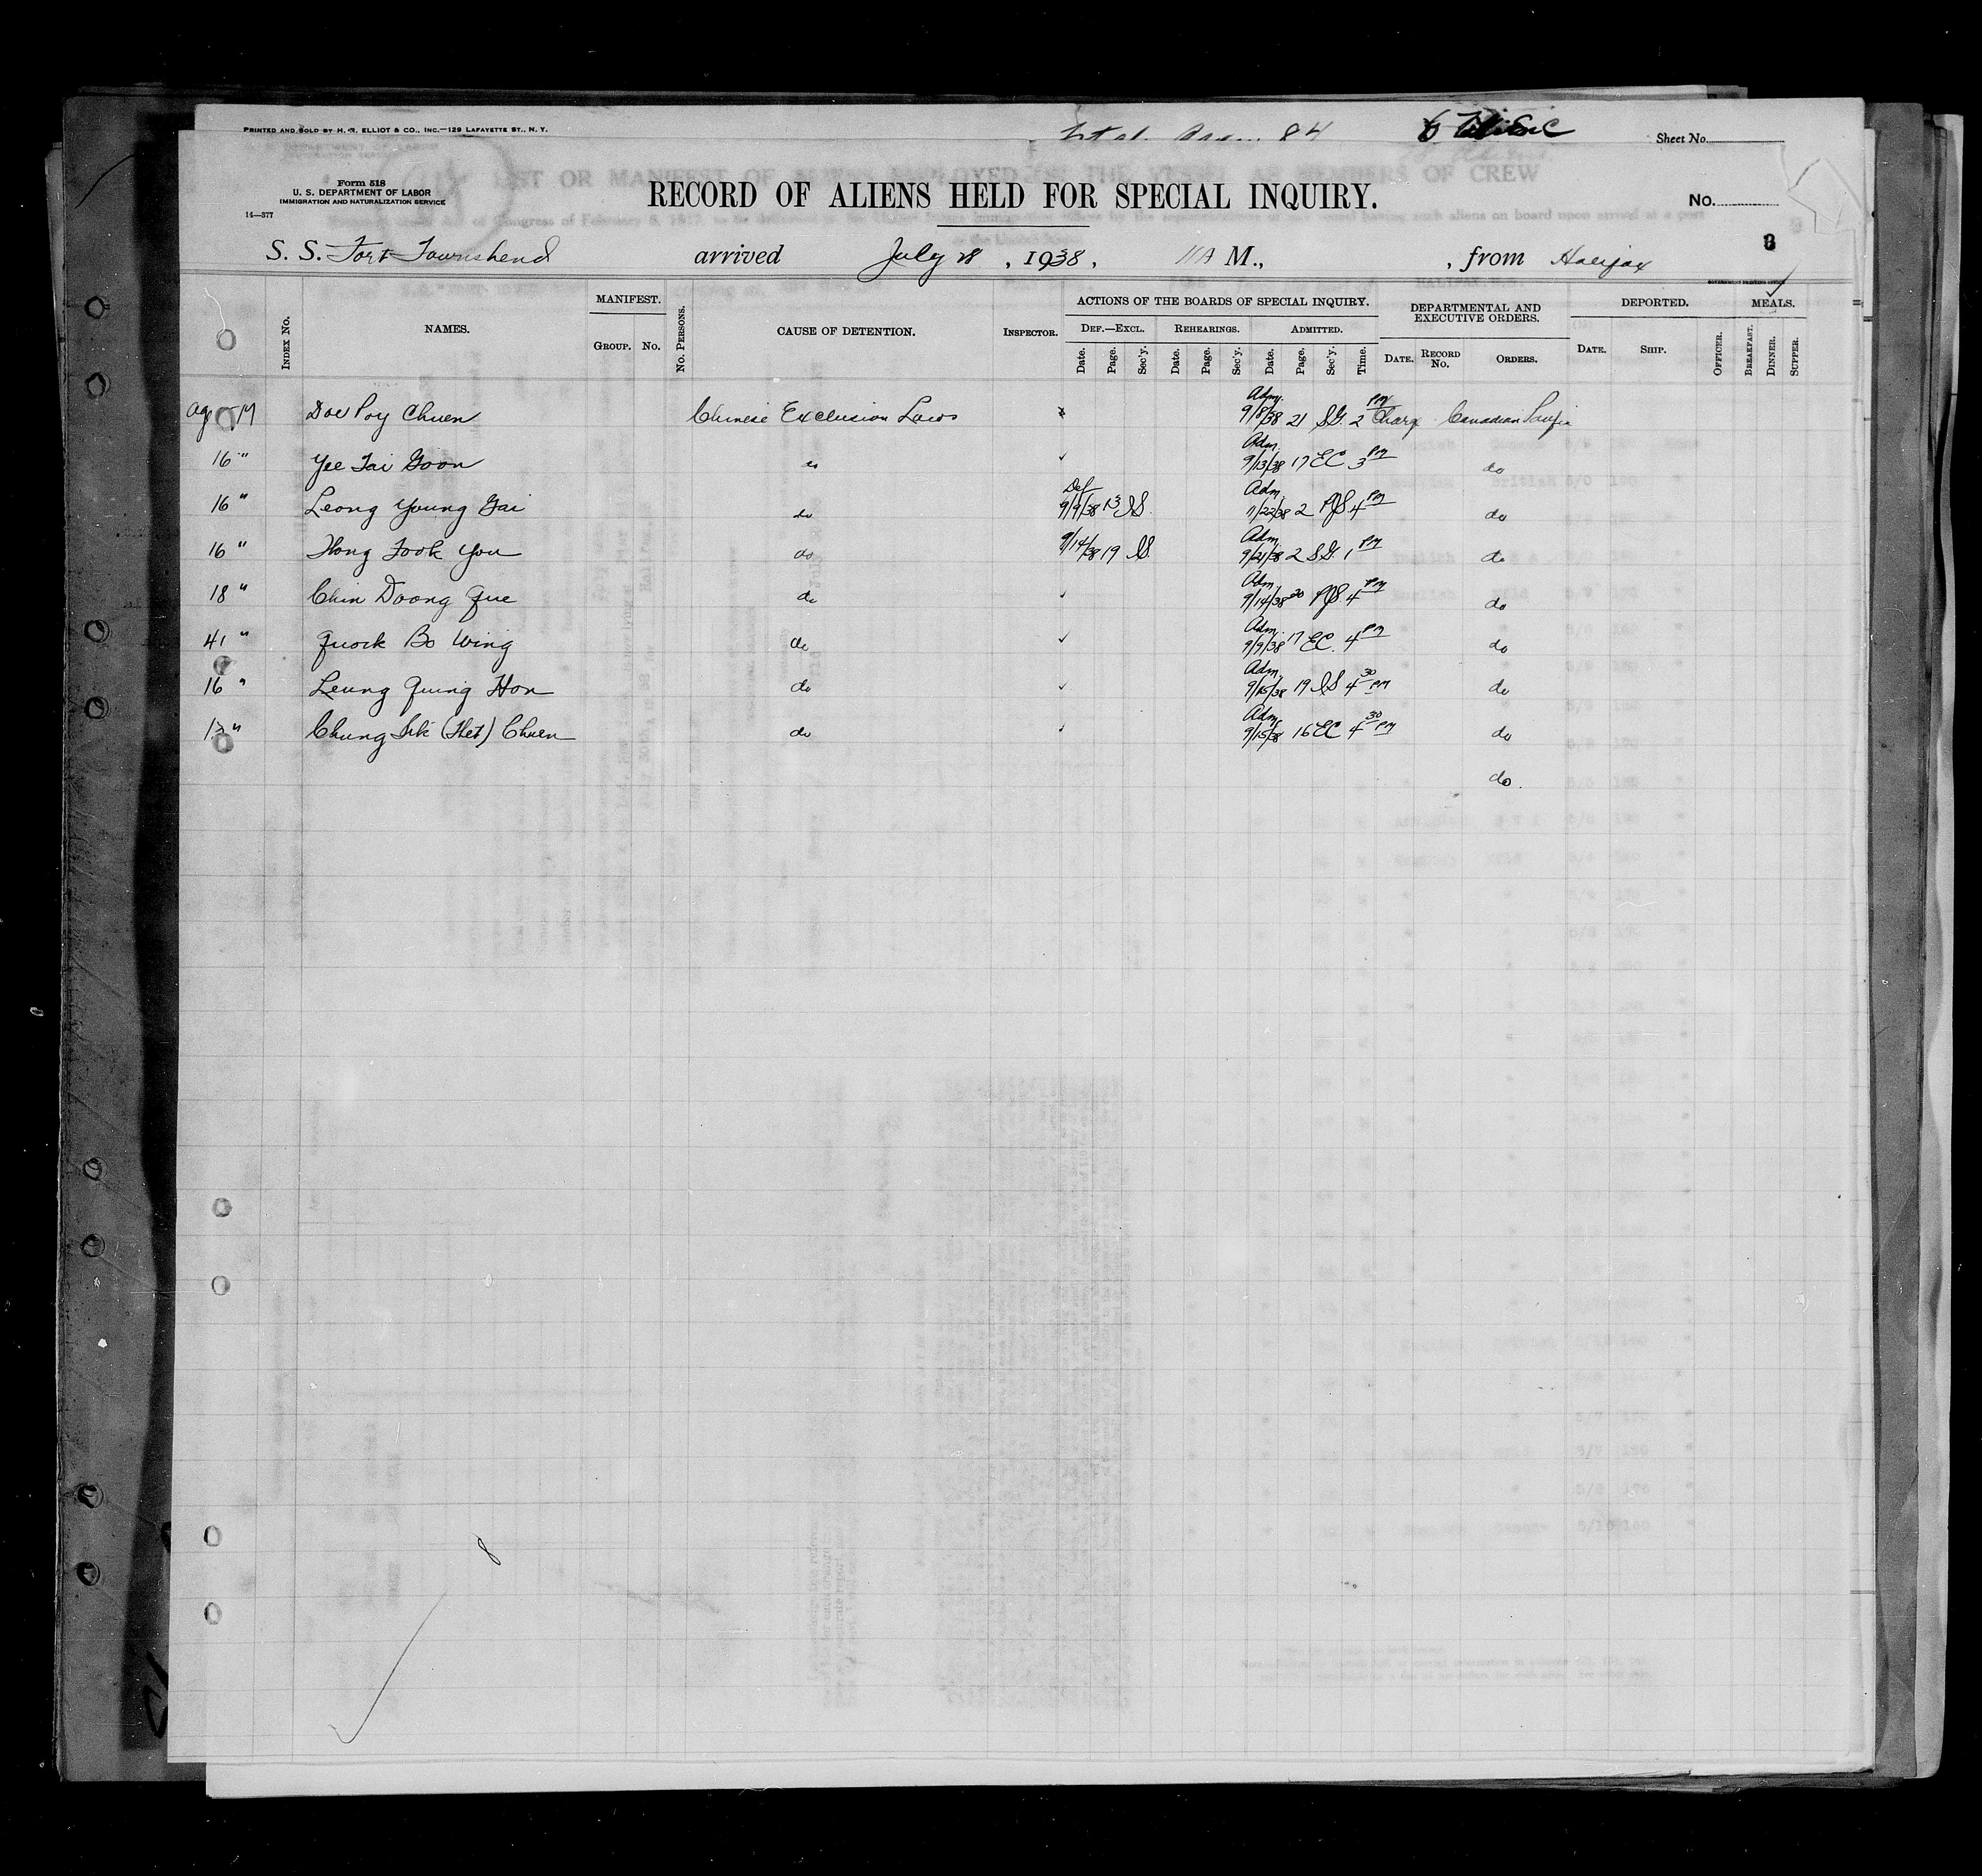 PRINTED AND SOLD BY H. R. ELLIOT & CO., INC.—129 LAFAYETTE ST., N. Y.
84
Sheet No.
Form 518
U. S. DEPARTMENT OF LABOR
IMMIGRATION AND NATURALIZATION SERVICE
14—377
RECORD OF ALIENS HELD FOR SPECIAL INQUIRY.
No.
3
S. S. Fort Townshend arrived July 28, 1938, 11 A M., , from Halifax
GOVERNMENT PRINTING OFFICE
INDEX No. NAMES. MANIFEST. GROUP. No. No. PERSONS. CAUSE OF DETENTION. INSPECTOR. ACTIONS OF THE BOARDS OF SPECIAL INQUIRY. DEF.—EXCL. Date. Page. Sec'y. REHEARINGS. Date. Page. Sec'y. ADMITTED. Date. Page. Sec'y. Time. DEPARTMENTAL AND EXECUTIVE ORDERS. DATE. RECORD No. ORDERS. DEPORTED. DATE. SHIP. OFFICER. MEALS. BREAKFAST. DINNER. SUPPER.
Doe Poy Chuen Chinese Exclusion Laws Adm. 9/8/38 21 S.G. 2 PM Charge Canadian Pacific
16 " Yee Tai Goon do Adm. 9/13/38 17 EC 3 PM do
16 " Leong Young Gai do Def 9/9/38 13 IS. Adm. 11/22/38 2 PJS 4 PM do
16 " Hong Fook You do 9/14/38 19 IS. Adm. 9/21/38 2 S.G. 1 PM do
18 " Chin Doong Que do Adm. 9/14/38 20 PJS. 4 PM do
41 " Quock Bo Wing do Adm. 9/9/38 17 EC. 4 PM do
16 " Leung Quing Hon do Adm. 9/15/38 19 IS 4 30 PM do
13 " Chung Sik (Het) Chuen do Adm. 9/15/38 16 EC 4 30 PM do
do.
8